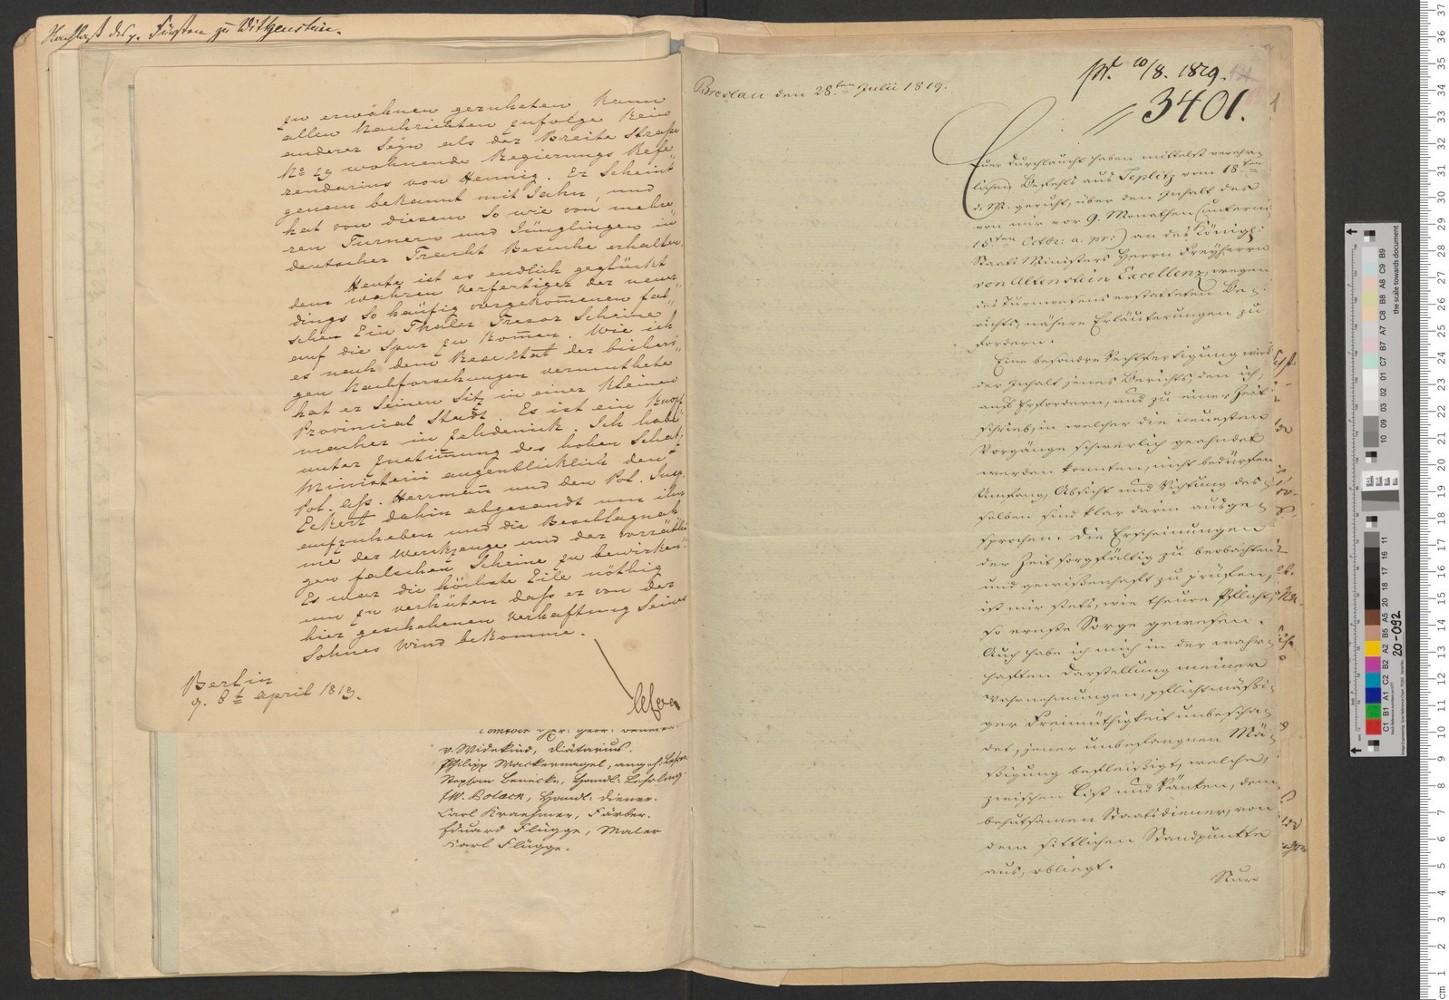 Nachlaß des p. Fürsten zu Wittgenstein.
zu erwähnen geruheten kann
allen Nachrichten zufolge kein
anderer seyn als der Breite Straße
No 29 wohnende Regierungs Refe-
rendarius von Hennig. Er scheint
genau bekannt mit Jahn, und
hat von diesem so wie von mehre-
ren Turnern und Jünglingen in
deutscher Tracht Besuche erhalten.
Heute ist es endlich geglückt
dem wahren Verfertiger der neuer-
dings so häufig vorgekommenen fal-
schen Ein Thaler Tresor Scheine
auf die Spur zu kommen. Wie ich
es nach dem Resultat der bisheri-
gen Nachforschungen vermuthete
hat er seinen Sitz in einer kleinen
Provincial Stadt. Es ist ein Knopf-
macher in Zehdenick. Ich habe
unter Zustimmung des hohen Schatz-
Ministerii augenblicklich den
Pol. Ass. Herrmann und den Pol. Insp.
Eckert dahin abgesandt um ihn
aufzuheben und die Beschlagnah-
me der Werkzeuge und der vorräthi-
gen falschen Scheine zu bewirken.
Es war die höchste Eile nöthig
um zu verhüten daß er von der
hier geschehenen Verhaftung seines
Sohnes Wind bekomme.
Berlin
d. 8t April 1819.
v. Widekind, Diätarius.
Philipp Wackernagel, angeh: Lehrer
Stephan Benecke, Handl: Lehrling
W. Bolack, Handl: Diener.
Carl Kraehmer, Färber.
Eduard Flügge, Maler
Karl Flügge.
pr. 10/8. 1819.
3401.
Breslau den 28ten Julii 1819.
Euer Durchlaucht haben mittelst verehr-
lichen Befehls aus Teplitz vom 18ten
d. M. geruht, über den Inhalt des
von mir vor 9. Monathen (unterm
15ten Octbr: a. pr:) an des Königl:
Staats Ministers Herrn Freyherrn
von Altenstein Excellenz, wegen
des Turnwesens erstatteten Be-
richts, nähere Erläuterungen zu
fordern.
Eine besondre Rechtfertigung wird
der Inhalt jenes Berichts, den ich,
aus Erfordern, und zu einer Zeit
schrieb, in welcher die neuesten
Vorgänge schwerlich geahndet
werden konnten, nicht bedürfen.
Umfang, Absicht und Richtung des-
selben sind klar darin ausge-
sprochen. Die Erscheinungen
der Zeit sorgfältig zu beobachten
und gewissenhaft zu prüfen,
ist mir stets, wie theure Pflicht,
so ernste Sorge gewesen.
Auch habe ich mich in der wahr-
haften Darstellung meiner
Wahrnehmungen, pflichtmäßi-
ger Freimüthigkeit unbescha-
det, jener unbefangnen Mä-
ßigung befleißigt, welche,
zwischen List und Ränken, dem
behutsamen Staatsdiener, von
dem sittlichen Standpunkte
aus, obliegt.
Nur
20-092
the scale towards document